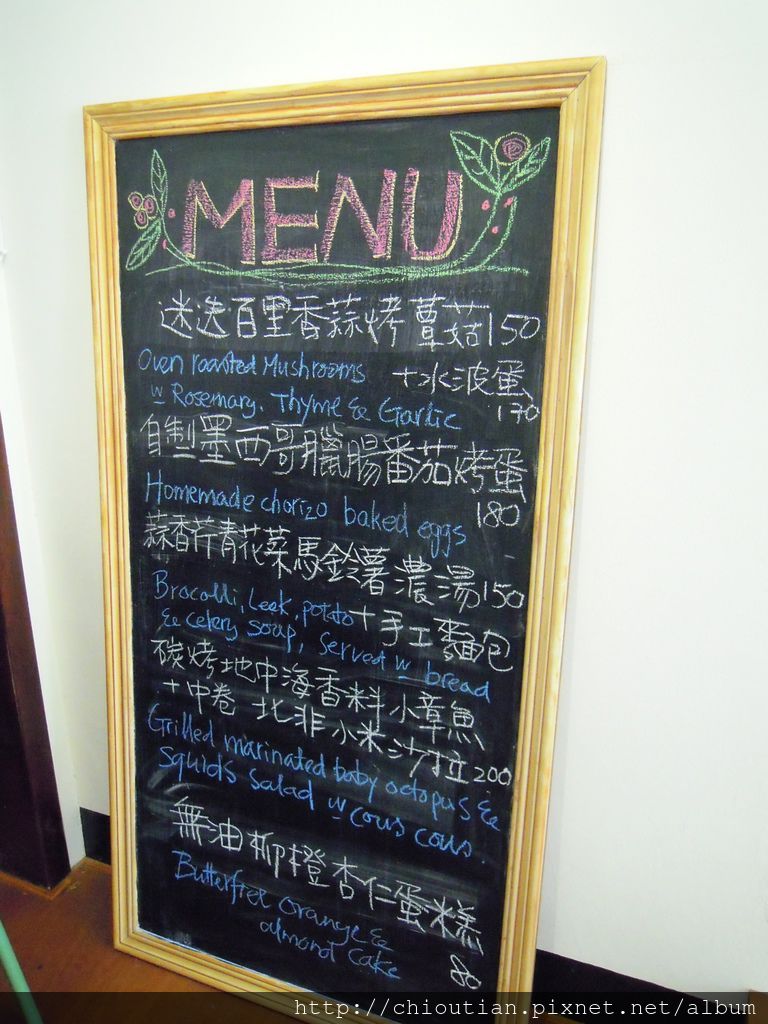 MENU
迷迭百里香蒜烤蕈菇150
Oven roasted Mushrooms +水波蛋
w Rosemary, Thyme & Garlic 170
自製墨西哥臘腸番茄烤蛋
Homemade chorizo baked eggs 180
蒜香芹青花菜馬鈴薯濃湯150
Brocolli, Leek, potato +手工麵包
& celery soup, served w bread
碳烤地中海香料小章魚
+中卷 北非小米沙拉200
Grilled marinated baby octopus &
squids salad w cous cous.
無油柳橙杏仁蛋糕
Butterfree orange &
almond cake 80
http://chioutian.pixnet.net/album